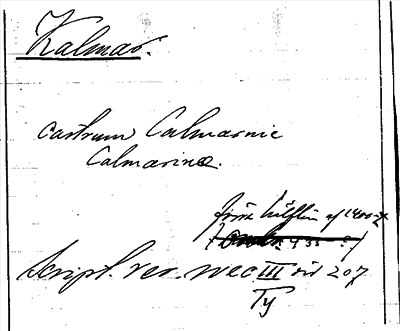 Kalmar.
castrum Calmarnie
Calmarina.
förra hälften af 1400-t.
Script. rer. svec III sid 207
Ty